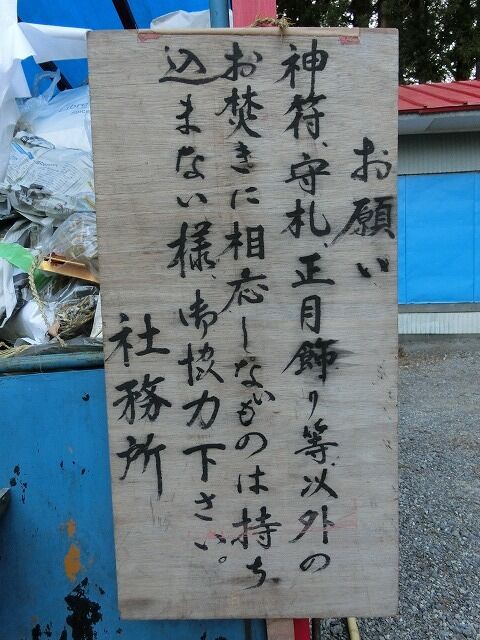 お願い
神符、守札、正月飾り等、以外の
お焚きに相応しないものは持ち
込まない様、御協力下さい。
社務所